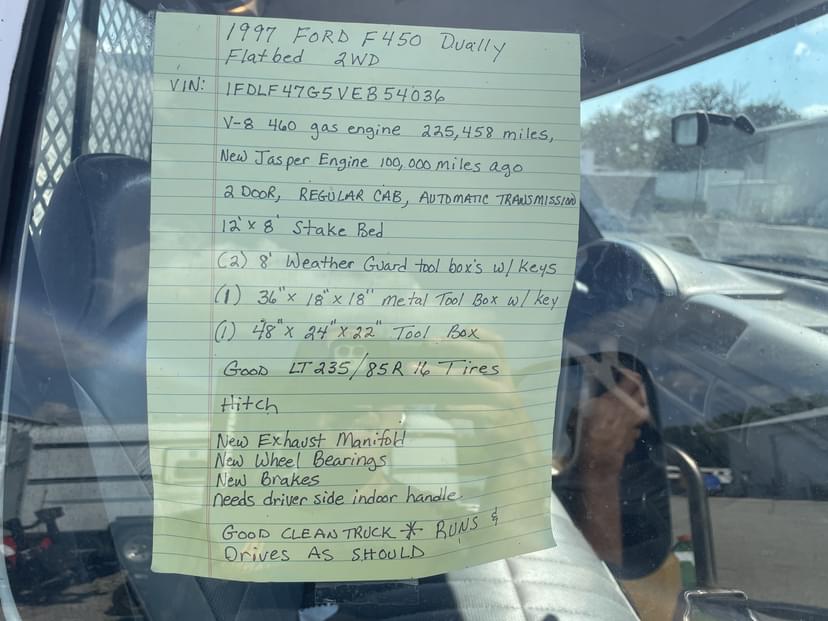 1997 FORD F450 Dually
Flatbed 2WD
VIN: 1FDLF47G5VEB54036
V-8 460 gas engine 225,458 miles,
New Jasper Engine 100,000 miles ago
2 DOOR, REGULAR CAB, AUTOMATIC TRANSMISSION
12' x 8' Stake Bed
(2) 8' Weather Guard tool box's w/ keys
(1) 36" x 18" x 18" metal Tool Box w/ key
(1) 48" x 24" x 22" Tool Box
Good LT 235/85R 16 Tires
Hitch
New Exhaust Manifold
New Wheel Bearings
New Brakes
needs driver side indoor handle
GOOD CLEAN TRUCK * RUNS &
Drives AS SHOULD